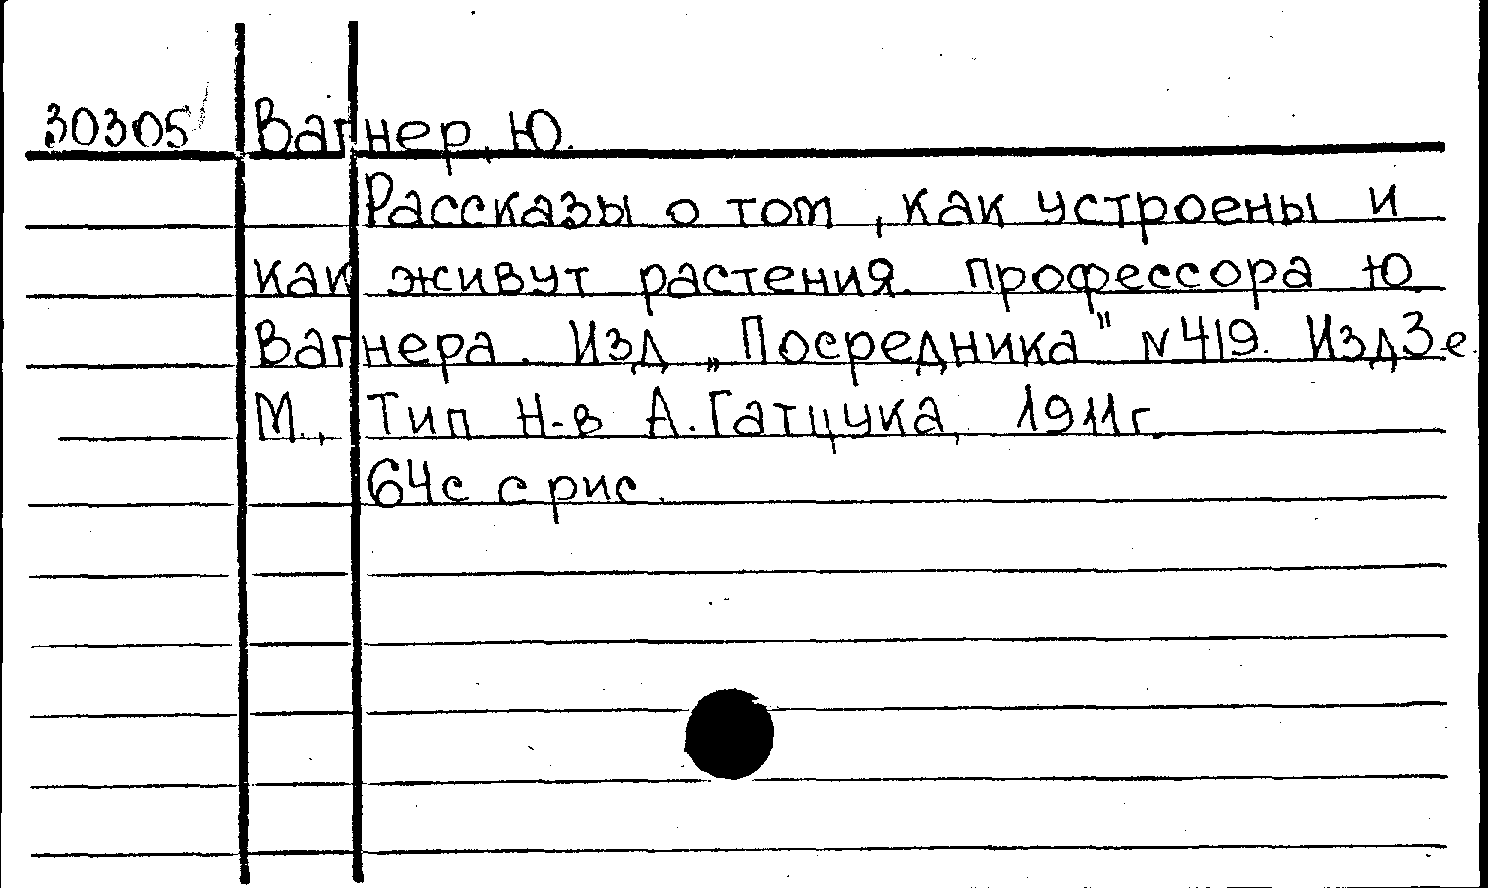 30305 Вагнер, Ю.
Рассказы о том, как устроены и
как живут растения. Профессора Ю.
Вагнера. Изд. „Посредника" N 419. Изд 3-е.
М., Тип Н-в А. Гатцука, 1911 г.
64 с с рис.